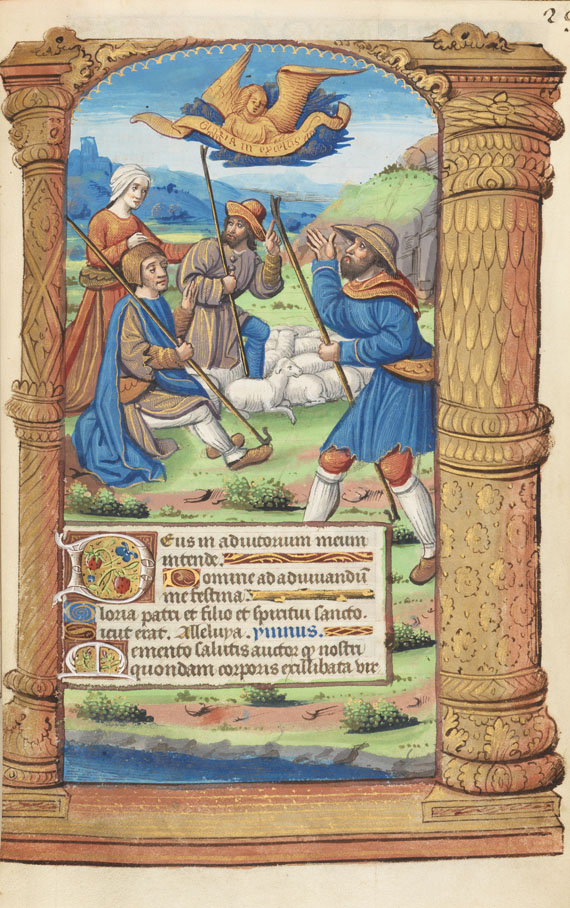 Gloria in excelsis
Deus in adiutorium meum
intende.
Domine ad adiuuandū
me festina.
Gloria patri et filio et spiritui sancto.
Sicut erat. Alleluya. ymnus.
Memento salutis auctor qͥ nostri
quondam corporis ex illibata vir